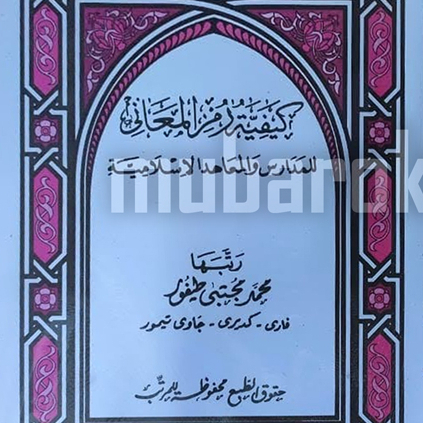 كيفية رمز المعاني
للمدارس والمعاهد الإسلامية
mubarok
رتبها
محمد مجتبى طيفور
فاري - كديري - جاوى تيمور
حقوق الطبع محفوظة للمرتب